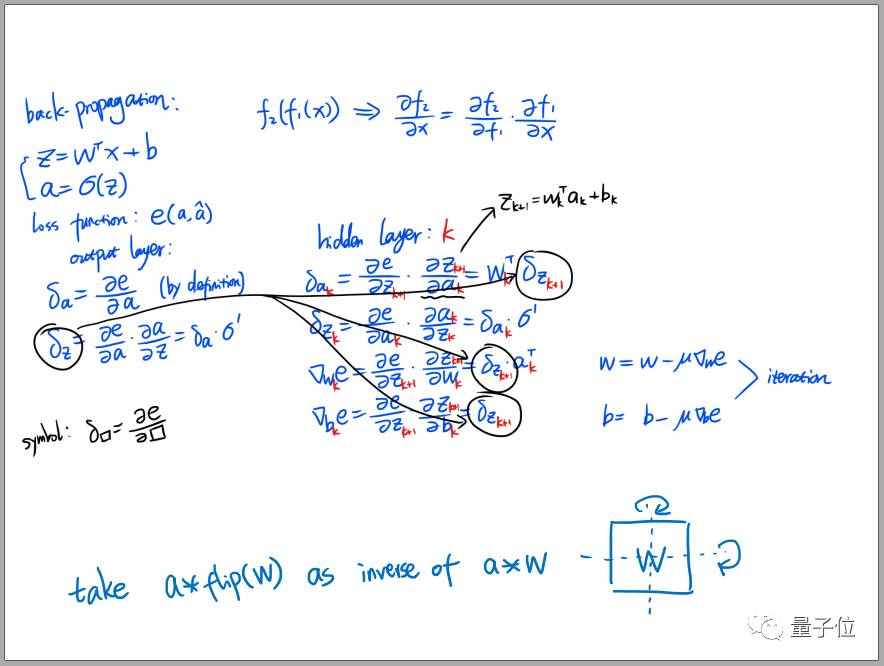 back-propagation:
f₂(f₁(x)) ⇒ ∂f₂/∂x = ∂f₂/∂f₁ · ∂f₁/∂x
z = wᵀx + b
a = σ(z)
loss function: e(a, â)
output layer:
δ_a = ∂e/∂a (by definition)
δ_z = ∂e/∂a · ∂a/∂z = δ_a · σ'
symbol: δ_□ = ∂e/∂□
z_{k+1} = w_kᵀ a_k + b_k
hidden layer: k
δ_{a_k} = ∂e/∂z_{k+1} · ∂z_{k+1}/∂a_k = w_kᵀ δ_{z_{k+1}}
δ_{z_k} = ∂e/∂a_k · ∂a_k/∂z_k = δ_{a_k} · σ'
∇_{w_k} e = ∂e/∂z_{k+1} · ∂z_{k+1}/∂w_k = δ_{z_{k+1}} · a_kᵀ
∇_{b_k} e = ∂e/∂z_{k+1} · ∂z_{k+1}/∂b_k = δ_{z_{k+1}}
w = w - μ∇_w e
b = b - μ∇_b e
iteration
take a*flip(W) as inverse of a*W
W
量子位